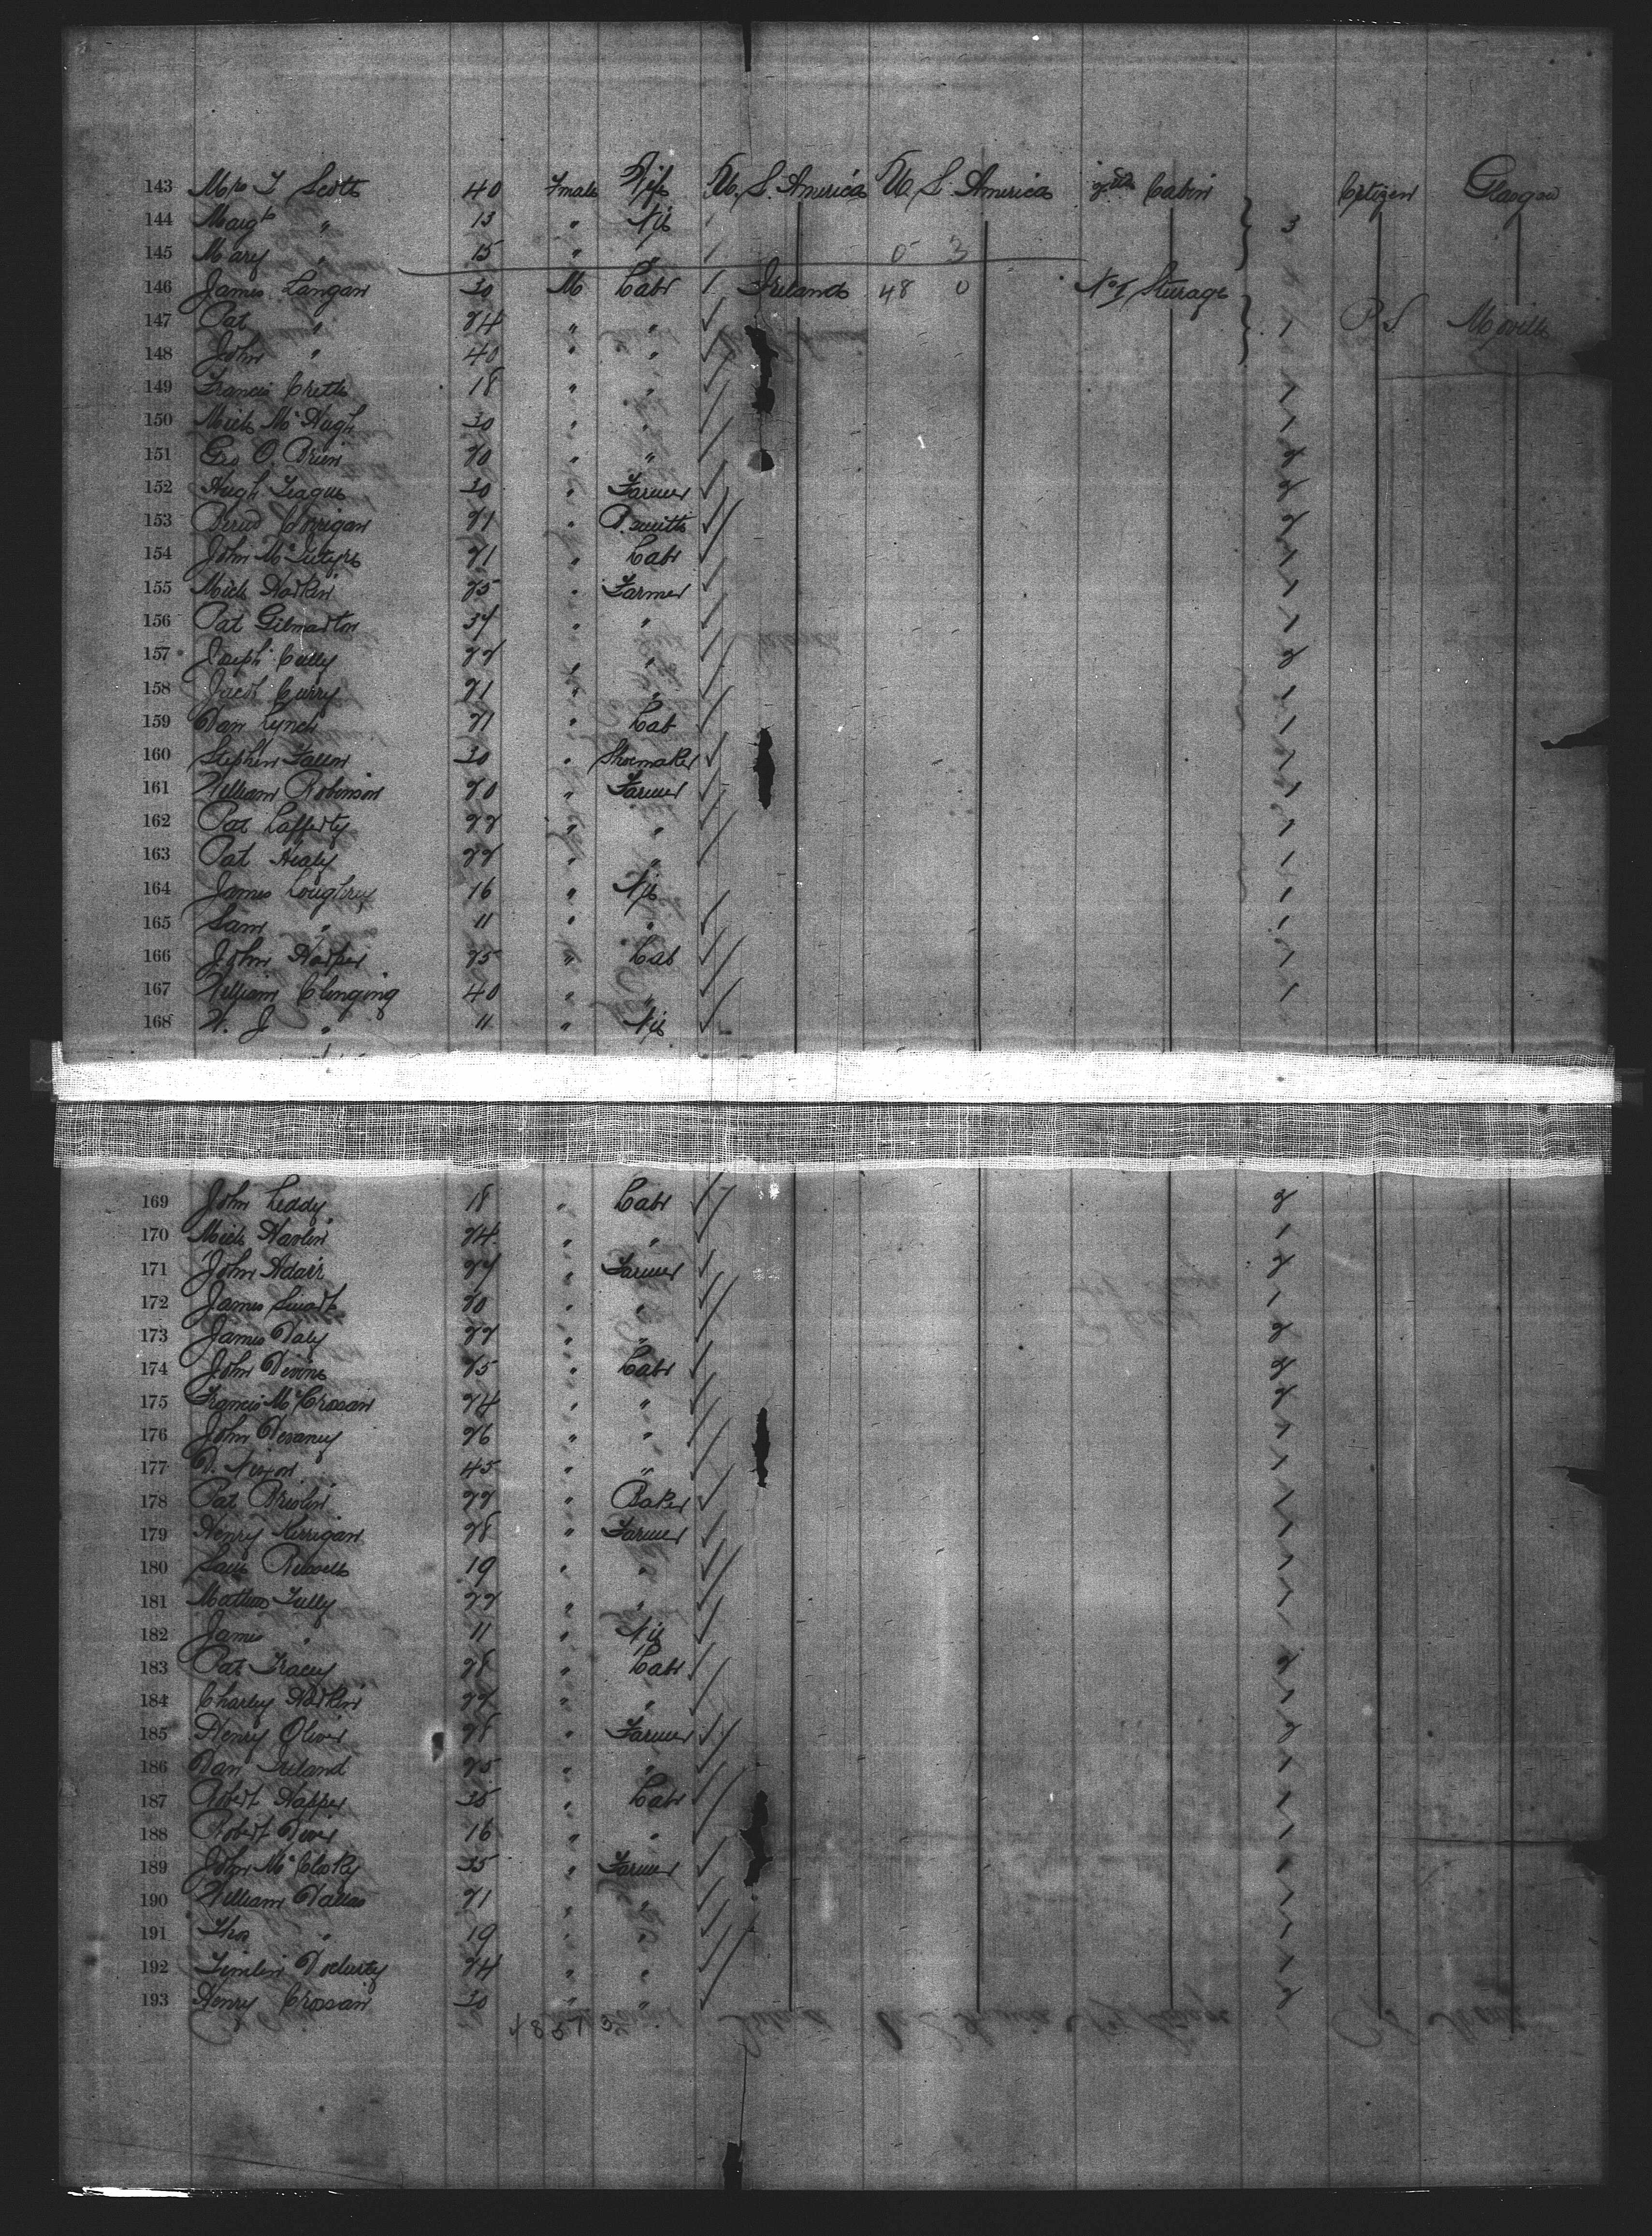 143 Mrs T Scott 40 Fmale Wife U. S. America U. S. America 2nd Cabin Citizen Glasgow
144 Margt " 13 " Nil 3
145 Mary " 15 " " 0 3
146 James Langan 30 M Labr Ireland 48 0 No 1 Steerage
147 Pat " 24 " " 1 P S Moville
148 John " 40 " "
149 Francis 18 " " 1
150 Mich McHugh 30 " " 1
151 Geo O. Brien 20 " " 2
152 Hugh Teague 30 " Farmer 2
153 Bernd Corrigan 21 " B. smith 2
154 John McIntyre 21 " Labr 1
155 Mich Harkin 25 " Farmer 1
156 Pat Gilmartin 34 " " 1
157 Joseph Cully 22 " " 2
158 Jacob Curry 21 " " 1
159 Dan Lynch 21 " Lab 1
160 Stephen Fallon 30 " Shoemaker 1
161 William Robinson 20 " Farmer 1
162 Pat Lafferty 22 " " 1
163 Pat Healy 22 " " 1
164 James Loughrey 16 " Nil 1
165 Sam " 11 " " 1
166 John Harper 25 " Lab 1
167 William Clenging 40 " " 1
168 W. J " 11 " Nil
169 John Leddy 18 " Labr 2
170 Mich Hanlin 24 " " 1
171 John Adair 24 " Farmer 2
172 James Smart 20 " " 1
173 James Daly 22 " " 2
174 John Devine 25 " Labr 2
175 Francis McCrossan 24 " " 2
176 John Devaney 26 " " 1
177 D. Nixon 45 " " 1
178 Pat Brislin 22 " Baker 1
179 Henry Kerrigan 28 " Farmer 1
180 19 " " 1
181 Mathew Tully 22 " " 1
182 James " 11 " Nil 1
183 Pat Tracey 28 " Labr 2
184 Charley Harkin 22 " " 1
185 Henry Oliver 28 " Farmer 2
186 Dan Ireland 25 " " 1
187 Robert Harper 35 " Labr 1
188 Robert Diver 16 " " 1
189 John McClosky 35 " Farmer 1
190 William Dallas 21 " " 1
191 Thos " 19 " " 1
192 Docherty 24 " " 1
193 Henry Crossan 30 " " 2